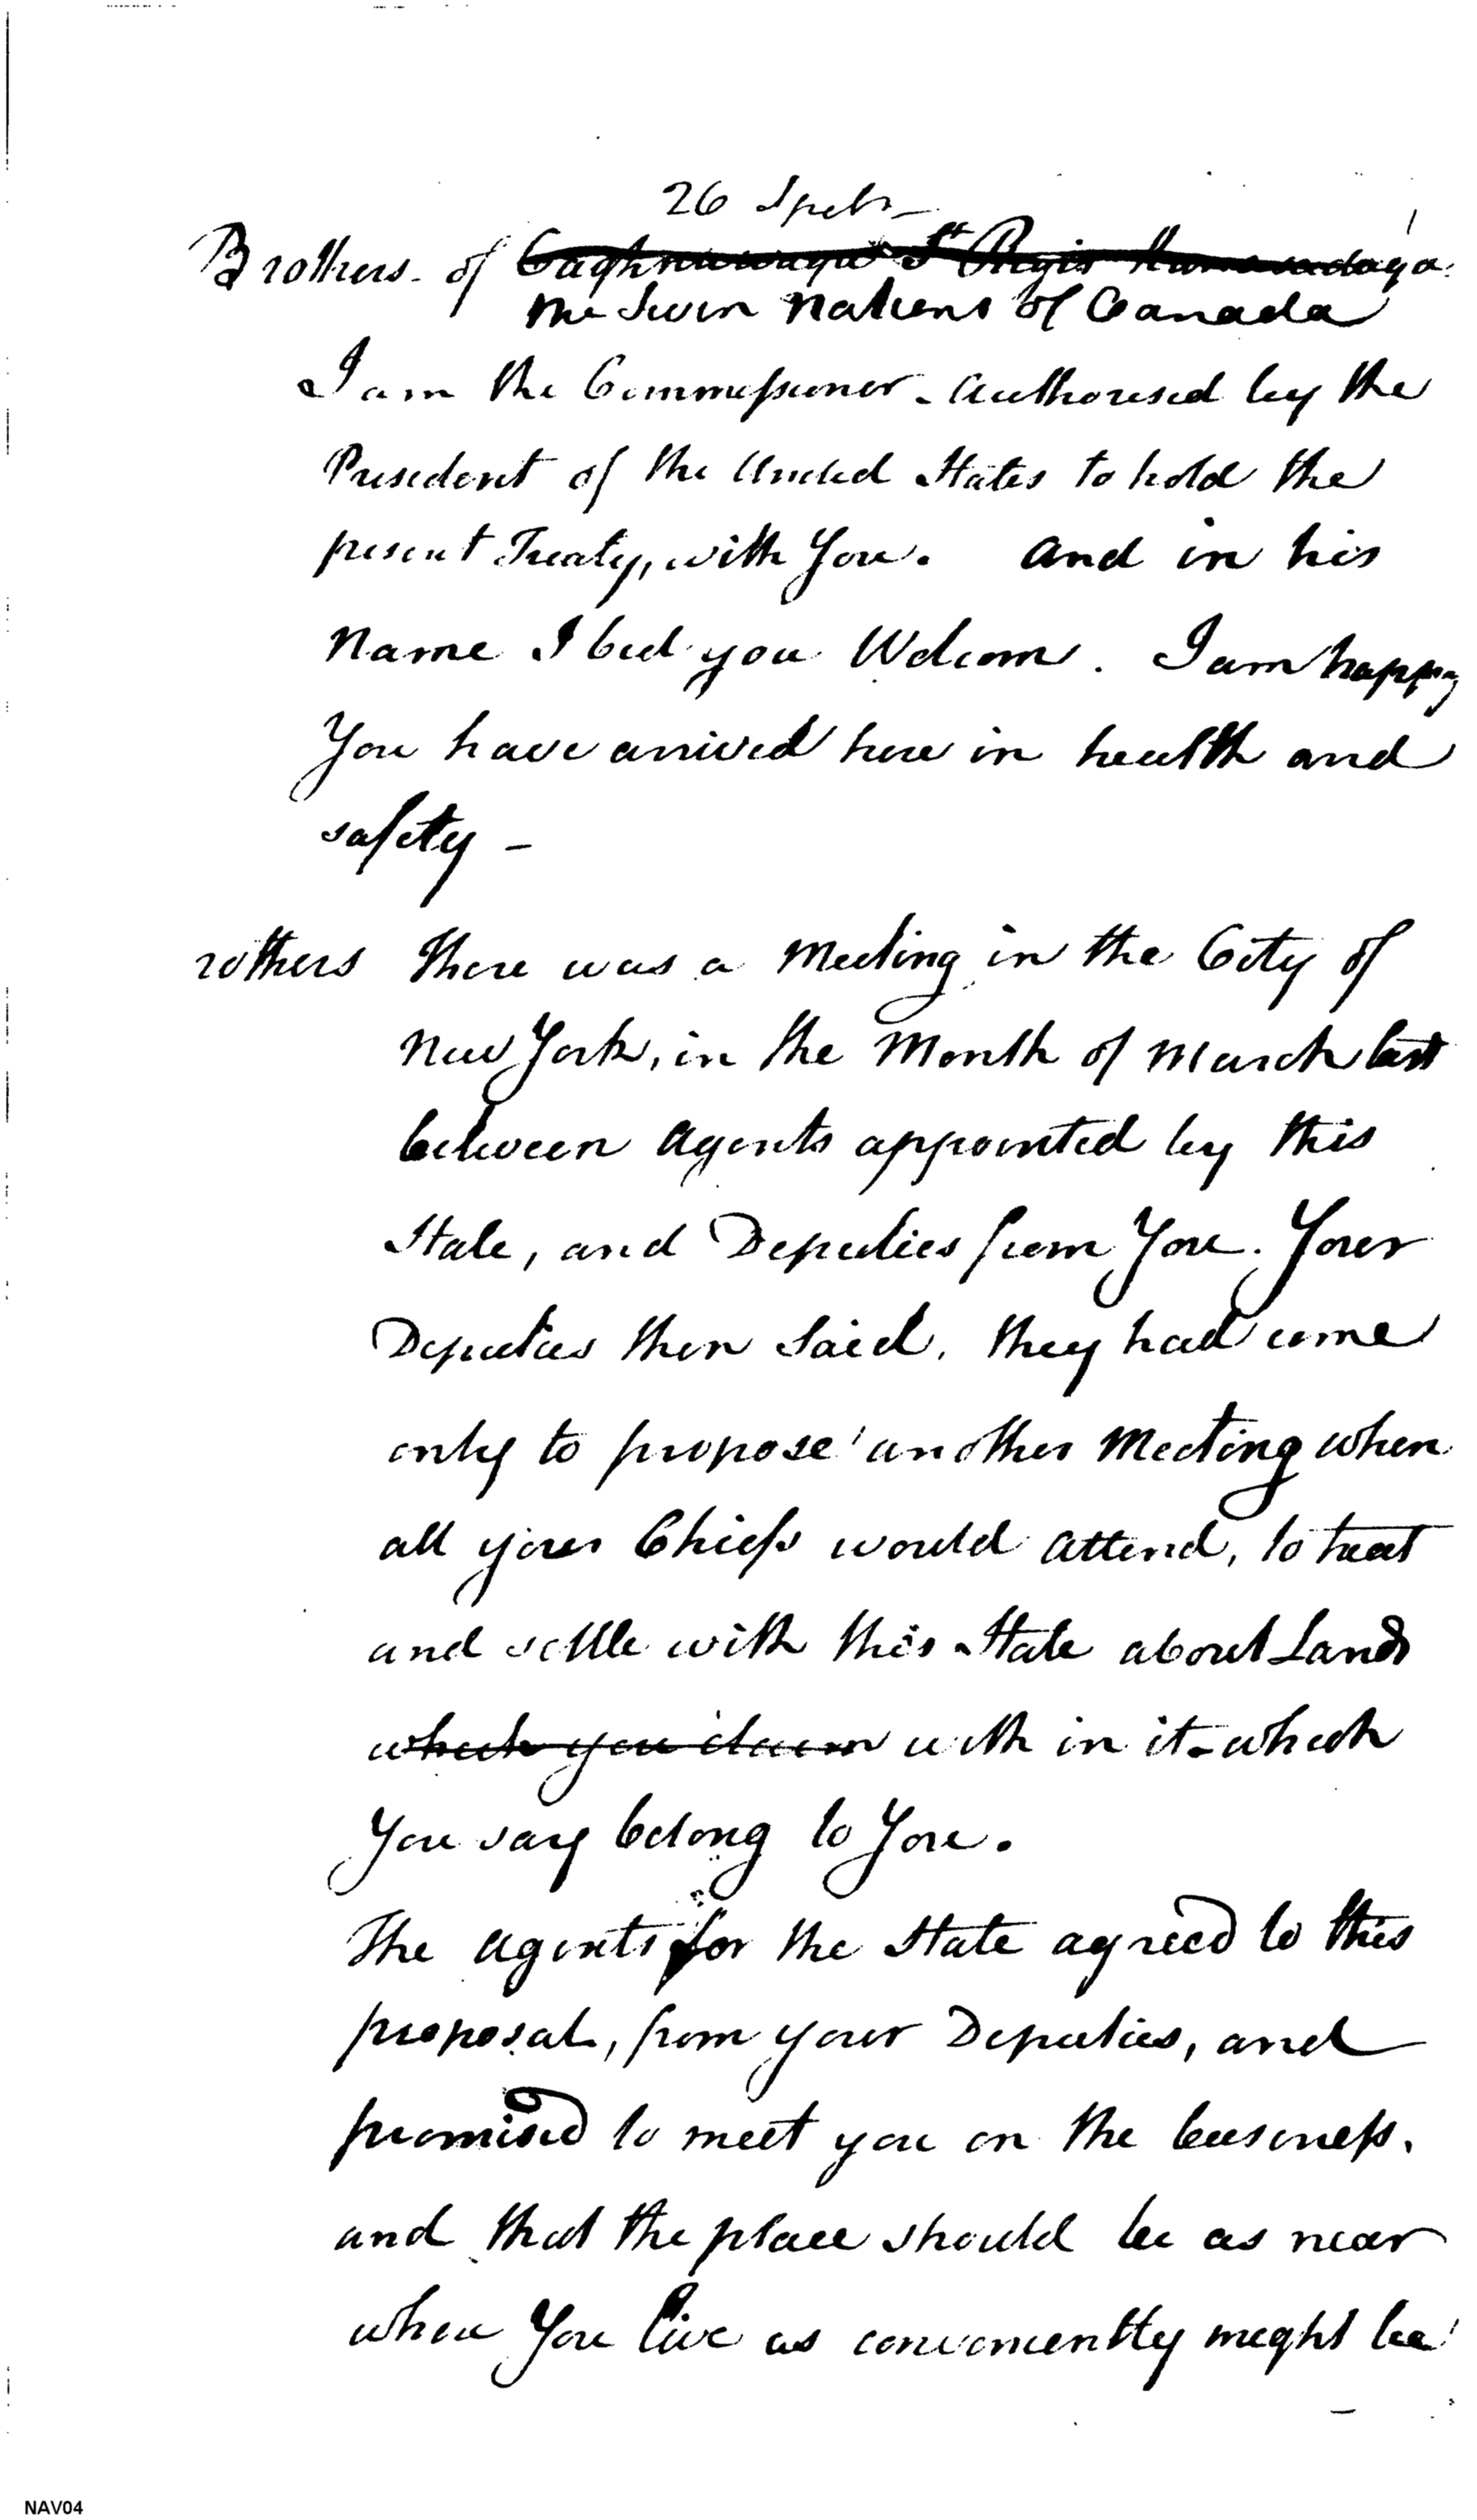 26 Septr
Brothers of Caghnawaga St Regis
the Seven Nations of Canada
I am the Commissioner authorised by the
President of the United States to hold the
present Treaty, with You. And in his
Name I bid you Welcom. I am happy
You have arrived here in health and
safety -
rothers There was a Meeting in the City of
New York, in the Month of March last
between Agents appointed by this
State, and Deputies from You. Your
Deputies then said, they had come
only to propose another Meeting when
all your Chiefs would attend, to treat
and settle with this State about Lands
which you claim with in it - which
You say belong to You.
The Agents for the State agreed to this
proposal, from your Deputies, and
promised to meet you on the business,
and that the place should be as near
where You live as conveniently might be
NAV04